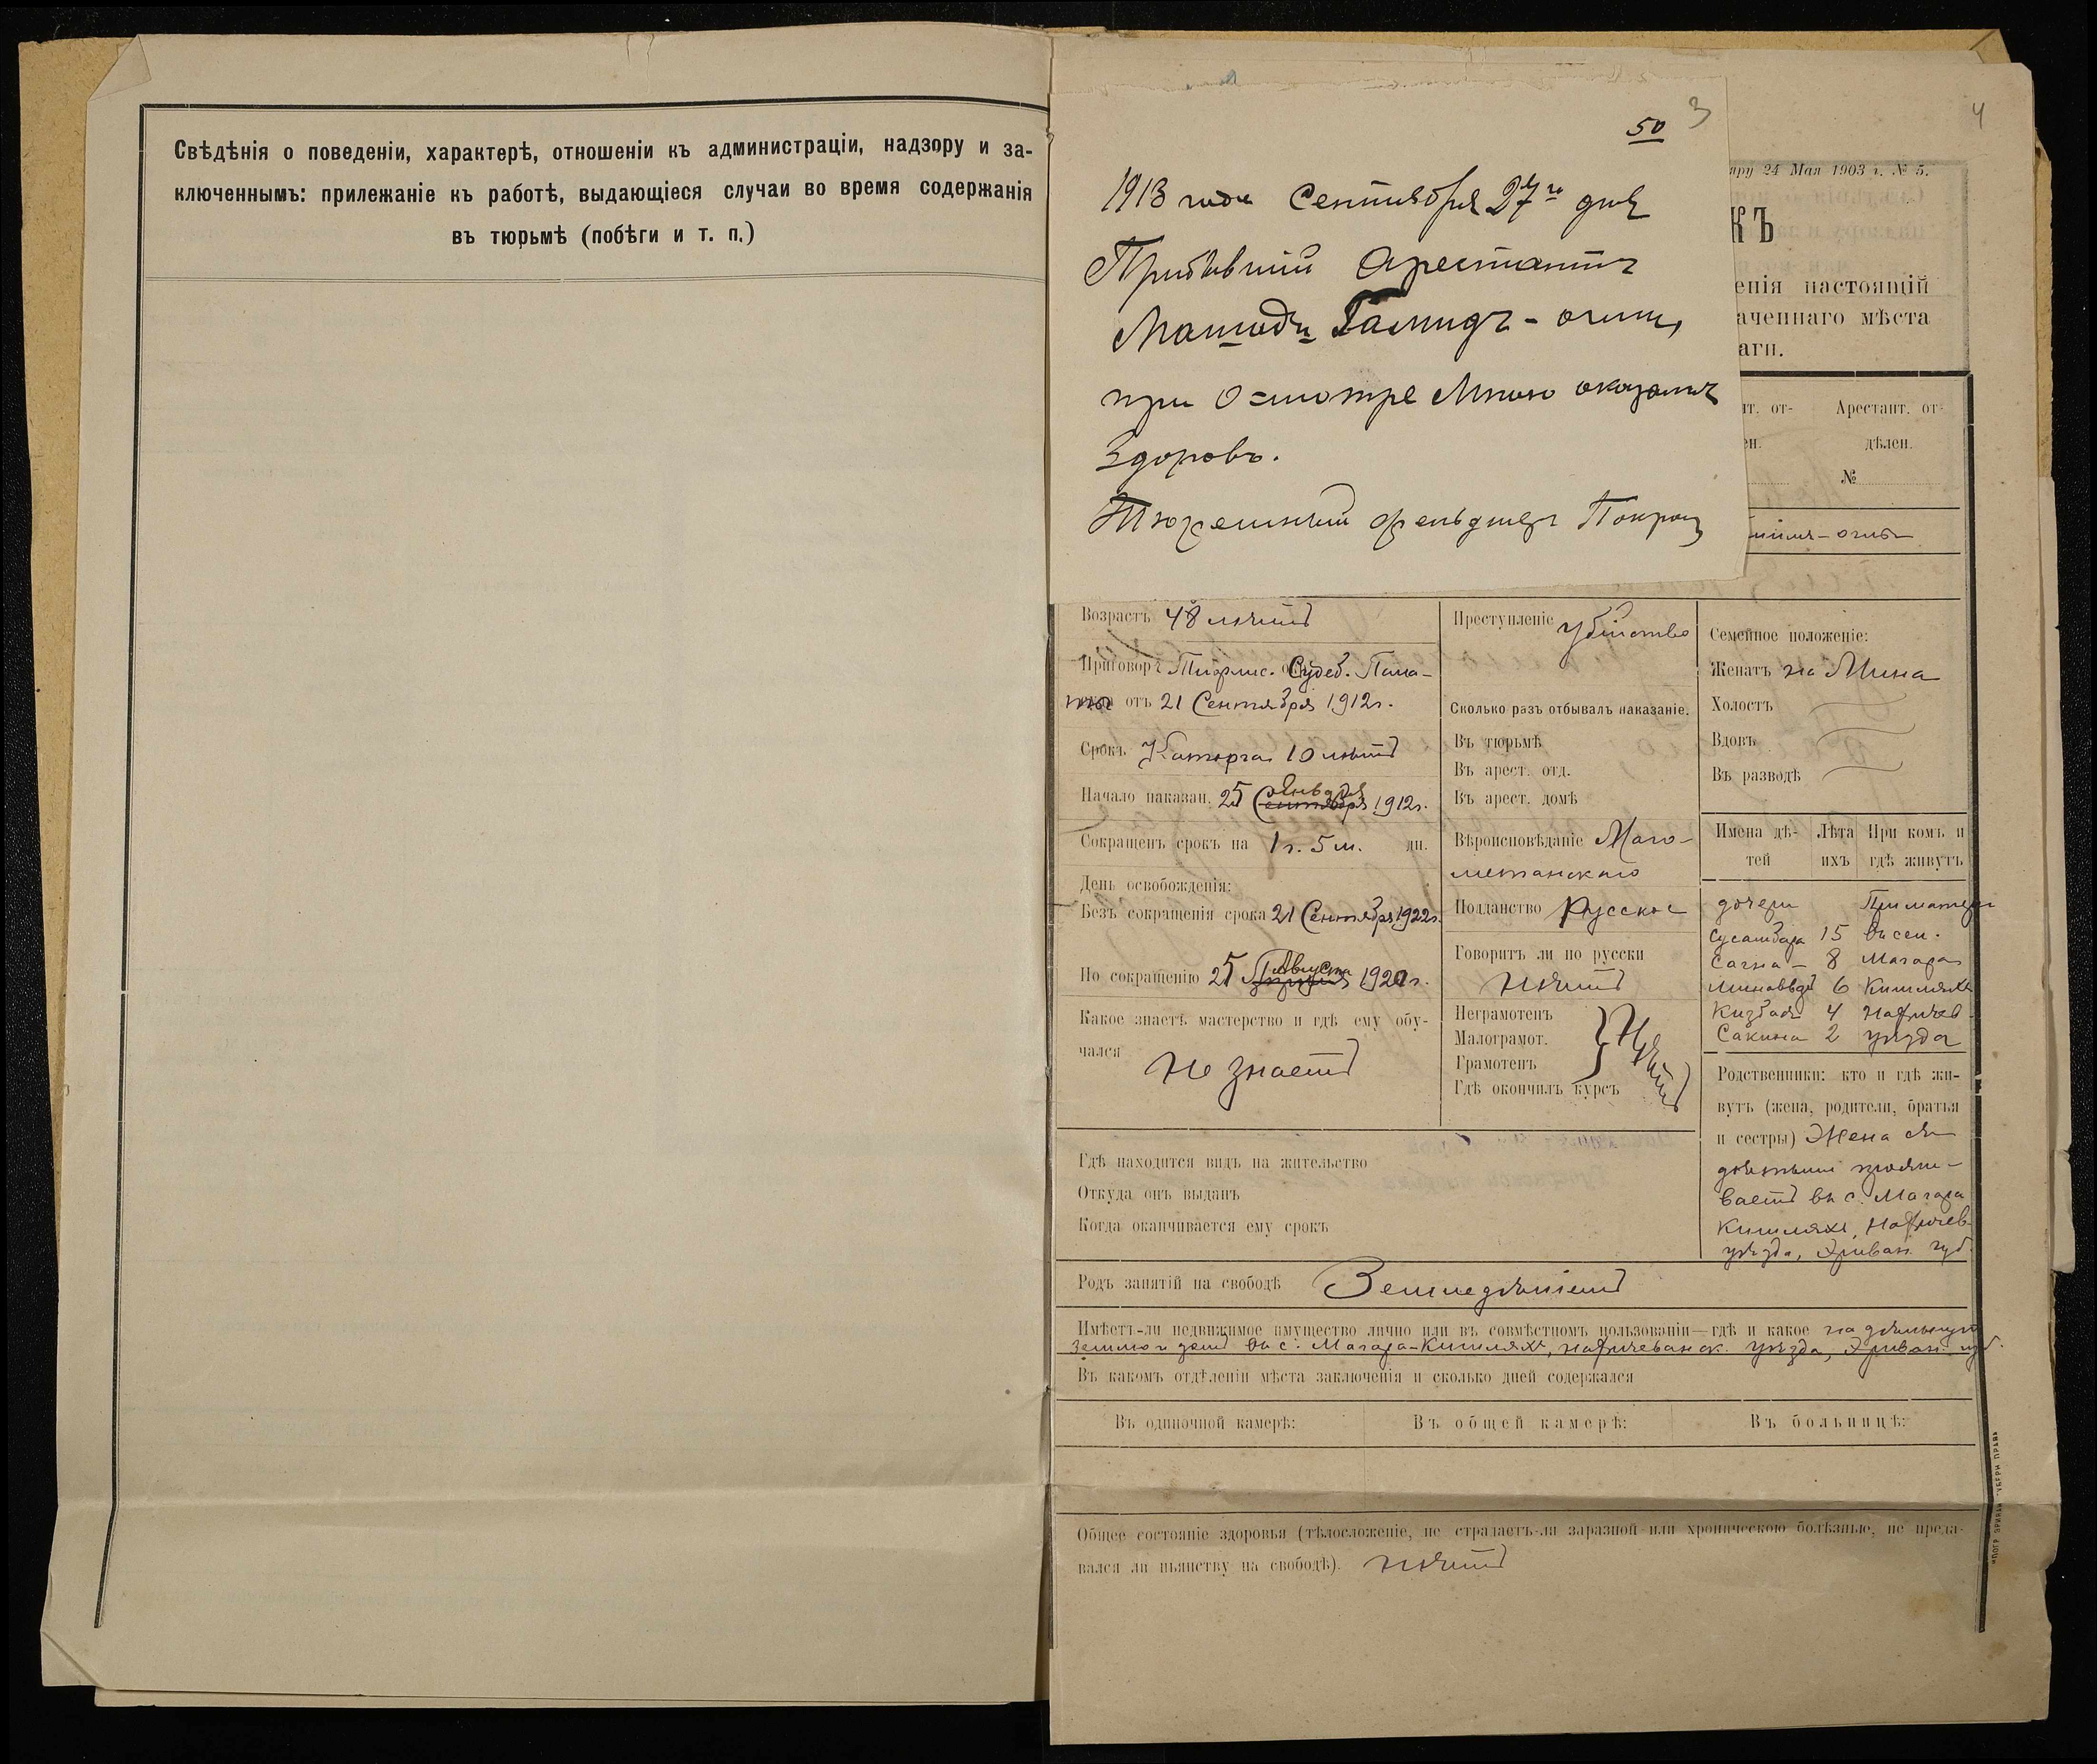 Свѣдѣнія о поведеніи, характерѣ, отношеніи къ администраціи, надзору и за-
ключеннымъ: прилежаніе къ работѣ, выдающіеся случаи во время содержанія
въ тюрьмѣ (побѣги и т. п.)
3
4
50
1913 года Сентября 27го дня
Прибывшій Арестантъ
Машади Гамидъ-оглы,
при осмотре Мною оказался
Здоровъ.
Тюремный фельдшеръ
24 Мая 1903 г. № 5.
КЪ
енія настоящій
аченнаго мѣста
аги.
нт. от-
ен.
Арестант. от-
дѣлен.
№
оглы
Возрастъ 48 лѣтъ
Приговоръ Тифлис. Судеб. Пала-
ты отъ 21 Сентября 1912 г.
Срокъ Каторга 10 лѣтъ
Начало наказан. 25 Сентября 1912 г.
Сокращенъ срокъ на 1 г. 5 м. дн.
День освобожденія:
Безъ сокращенія срока 21 Сентября 1922 г.
По сокращенію 25 Августа 192 г.
Какое знаетъ мастерство и гдѣ ему обу-
чался Не знаетъ
Преступленіе убійство
Сколько разъ отбывалъ наказаніе.
Въ тюрьмѣ
Въ арест. отд.
Въ арест. домѣ
Вѣроисповѣданіе Маго-
метанскаго
Подданство Русское
Говоритъ ли по русски
Нѣтъ
Неграмотенъ
Малограмот.
Грамотенъ
Гдѣ окончилъ курсъ
Нѣтъ
Семейное положеніе:
Женатъ на Мина
Холостъ
Вдовъ
Въ разводѣ
Имена дѣ-
тей
Лѣта
ихъ
При комъ и
гдѣ живутъ
дочери При матери
15 въ сел.
8 Магара
6 Кишляхъ
4 Нахичев.
Сакина 2 уѣзда
Родственники: кто и гдѣ жи-
вутъ (жена, родители, братья
и сестры) Жена съ
дѣтьми прожи-
ваетъ въ с. Магара
Кишляхъ, Нахичев.
уѣзда, Эриван. губ.
Гдѣ находится видъ на жительство
Откуда онъ выданъ
Когда оканчивается ему срокъ
Родъ занятій на свободѣ Земледѣліемъ
Имѣетъ-ли недвижимое имущество лично или въ совмѣстномъ пользованіи—гдѣ и какое надѣльную
землю и домъ въ с. Магара-Кишляхъ, Нахичеванск. уѣзда, Эриван. губ.
Въ какомъ отдѣленіи мѣста заключенія и сколько дней содержался
Въ одиночной камерѣ:
Въ общей камерѣ:
Въ больницѣ:
Общее состояніе здоровья (тѣлосложеніе, не страдаетъ-ли заразной или хроническою болѣзнью, не преда-
вался ли пьянству на свободѣ). Нѣтъ